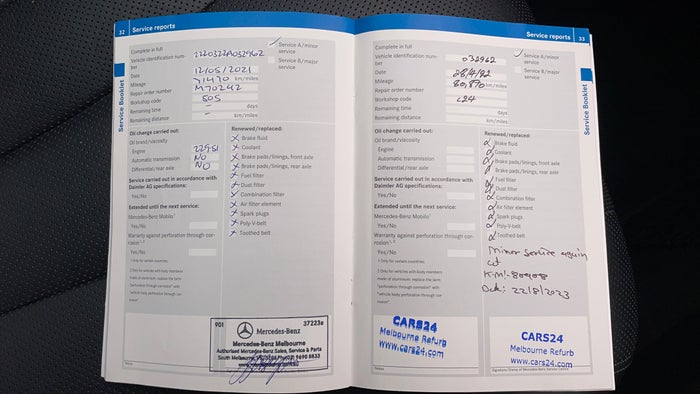 32 Service reports
Complete in full
Service A/minor service
Vehicle identification number
2220322A032962
Service B/major service
Date
12/05/2021
Mileage
71470 km/miles
Repair order number
M70242
Workshop code
505
Remaining time
– days
Remaining distance
– km/miles
Service Booklet
Oil change carried out:
Oil brand/viscosity
Engine
229.51
Automatic transmission
NO
Differential/rear axle
NO
Service carried out in accordance with
Daimler AG specifications:
Yes/No
Extended until the next service:
Mercedes-Benz Mobilo¹
Yes/No
Warranty against perforation through cor-
rosion¹,²
Yes/No
1 Only for certain countries
2 Only for vehicles with body members
made of aluminium: replace the term
"perforation through corrosion" with
"vehicle body perforation through cor-
rosion"
Renewed/replaced:
Brake fluid
Coolant
Brake pads/linings, front axle
Brake pads/linings, rear axle
Fuel filter
Dust filter
Combination filter
Air filter element
Spark plugs
Poly-V-belt
Toothed belt
901
37223e
Mercedes-Benz
Mercedes-Benz Melbourne
Authorised Mercedes-Benz Sales, Service & Parts
Service reports 33
Complete in full
Service A/minor service
Vehicle identification number
032962
Service B/major service
Date
Mileage
80,870 km/miles
Repair order number
Workshop code
c24
Remaining time
days
Remaining distance
km/miles
Service Booklet
Oil change carried out:
Oil brand/viscosity
Engine
Automatic transmission
Differential/rear axle
Service carried out in accordance with
Daimler AG specifications:
Yes/No
Extended until the next service:
Mercedes-Benz Mobilo¹
Yes/No
Warranty against perforation through cor-
rosion¹,²
Yes/No
1 Only for certain countries
2 Only for vehicles with body members
made of aluminium: replace the term
"perforation through corrosion" with
"vehicle body perforation through cor-
rosion"
Renewed/replaced:
Brake fluid
Coolant
Brake pads/linings, front axle
Brake pads/linings, rear axle
Fuel filter
Dust filter
Combination filter
Air filter element
Spark plugs
Poly-V-belt
Toothed belt
Minor service again
at
K.M:- 80908
22/8/2023
CARS24
Melbourne Refurb
www.cars24.com
CARS24
Melbourne Refurb
www.cars24.com
Signature/Stamp of Mercedes-Benz Service Centre